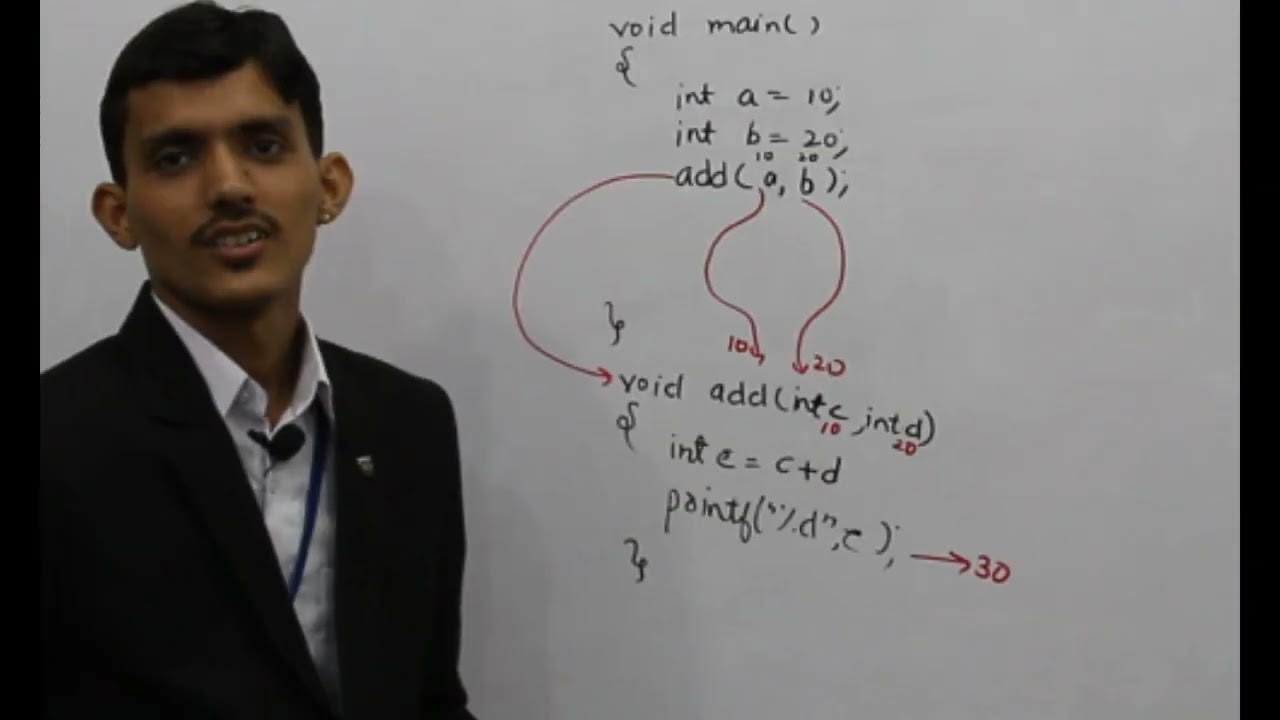 void main()
{
int a = 10;
int b = 20;
10 20
add(a, b);
}
10 20
void add(int c, int d)
10 20
{
int e = c+d
printf("%d", e); → 30
}